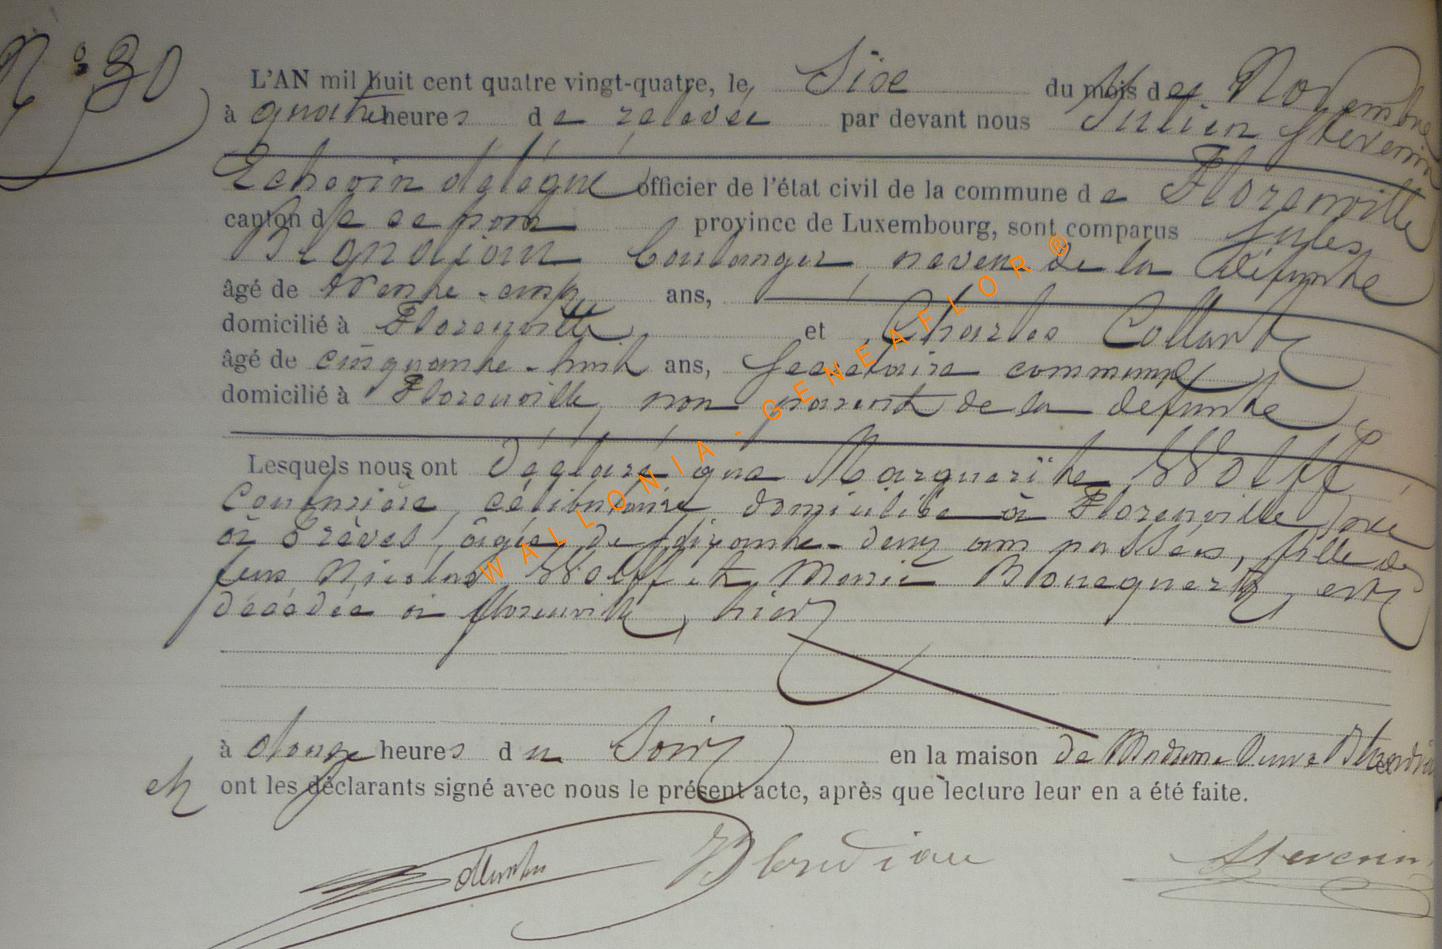 N° 30
L'AN mil huit cent quatre vingt-quatre, le Six du mois de Novembre
à quatre heures de relevée par devant nous Julien Stevenin
Echevin délégué officier de l'état civil de la commune de Florenville
canton de ce nom province de Luxembourg, sont comparus Jules
Blondiau boulanger, neveu de la défunte
âgé de trente-cinq ans,
domicilié à Florenville et Charles Collart
âgé de cinquante-huit ans, Secrétaire communal
domicilié à Florenville, non parent de la défunte
Lesquels nous ont déclaré que Marguerite Wolff
Couturière, célibataire domiciliée à Florenville, née
à Trèves, âgée de soixante-deux ans passés, fille de
feus Nicolas Wolff et Marie, est
décédée à Florenville, hier
à onze heures du Soir en la maison de Madame Veuve Blondiau
et ont les déclarants signé avec nous le présent acte, après que lecture leur en a été faite.
Collart Blondiau Stevenin
WALLONIA - GENEAFLOR®